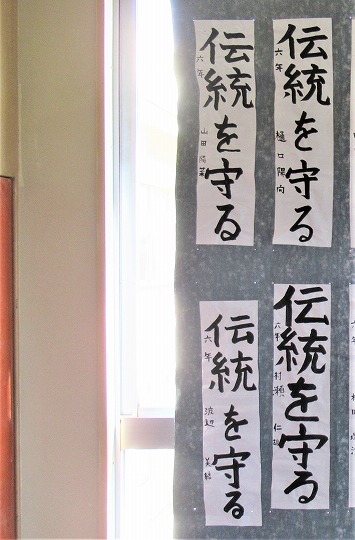 伝統を守る
六年 樋口陽向
伝統を守る
六年 山田陽菜
伝統を守る
六年 村瀬 仁
伝統を守る
六年 渡辺 美結